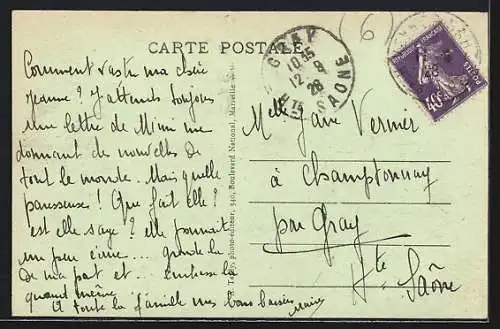 CARTE POSTALE
GRAY
10 35
12 - 9
28
Hte SAONE
Comment vas tu ma chère
Jeanne ? J'attends toujours
une lettre de Mimi me
donnant des nouvelles de
tout le monde. Mais quelle
paresseuse ! Que fait elle ?
est elle sage ? elle pourrait
un peu écrire ... gronde la
de ma part et ... embrasse la
quand même.
A toute la famille mes bons baisers
Melle Jane Vernier
à Champtonnay
par Gray
Hte Saône
photo-éditeur, 340, Boulevard National, Marseille
POSTES
40c
6